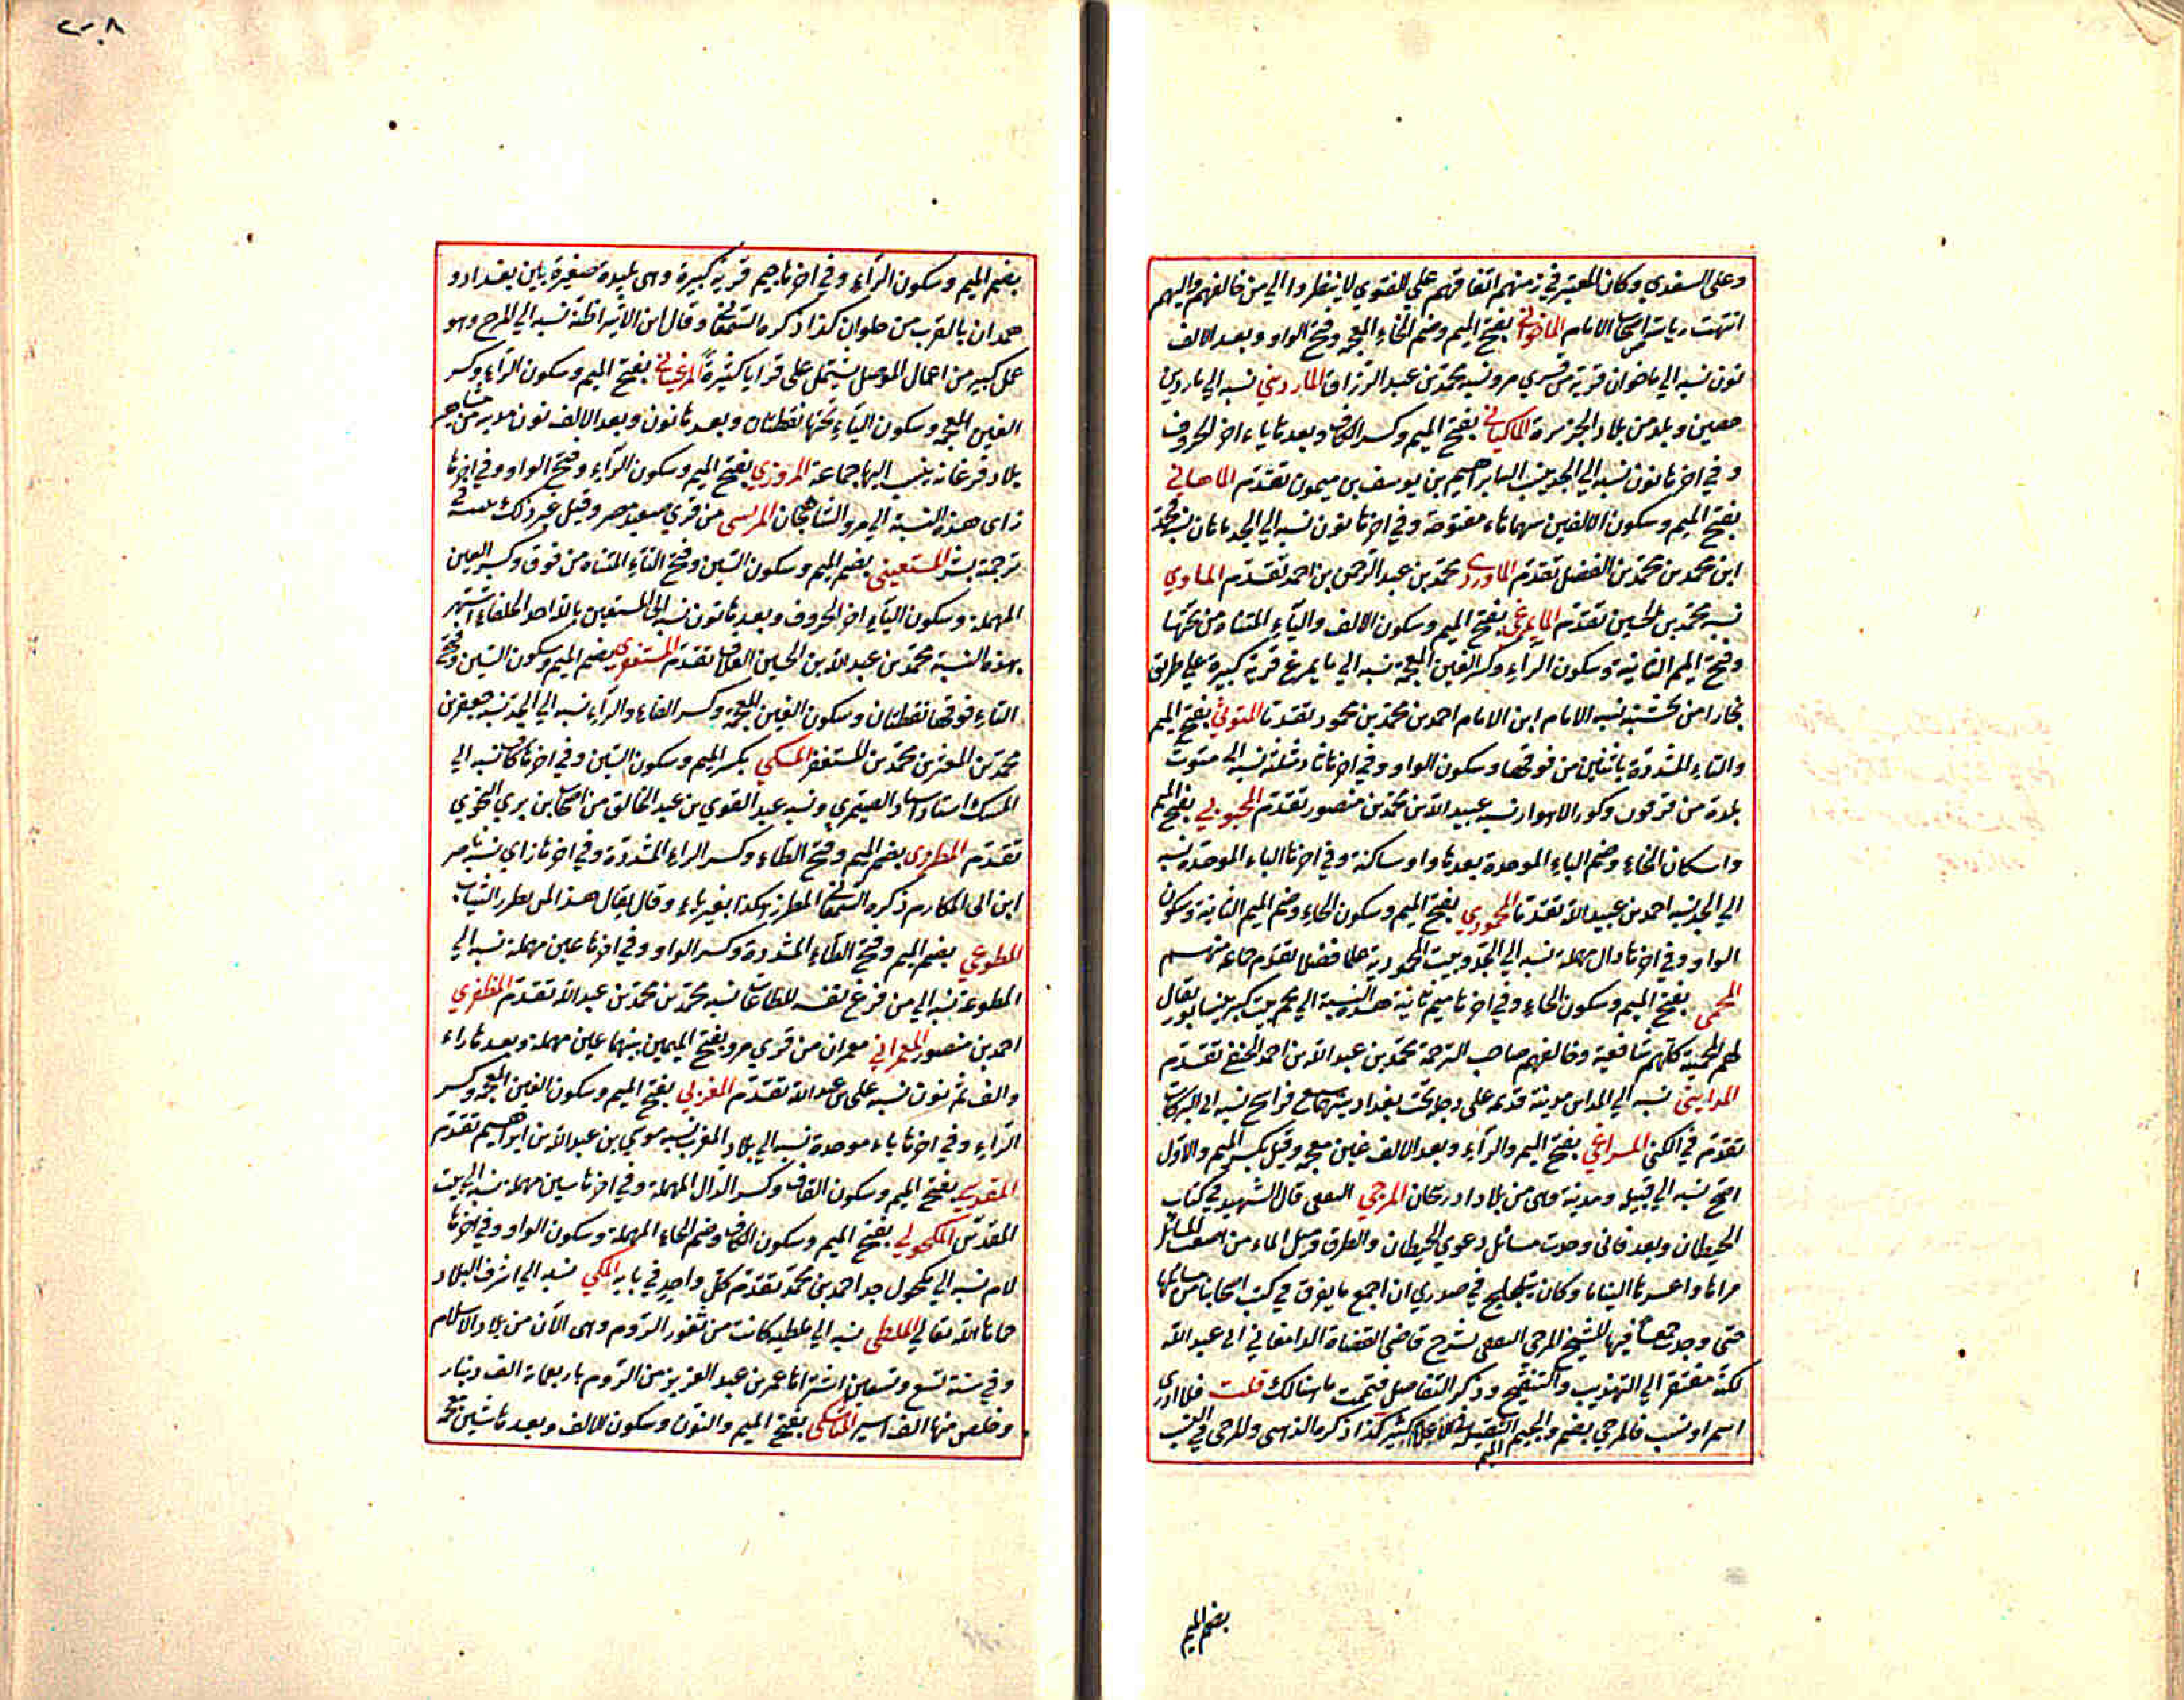 وعلى السغدي وكان المعتبر في زمنهم اتفاقهم علي الفتوي لا ينظروا الي من خالفهم واليهم
انتهت رياسة اصحاب الامام الماخواني بفتح الميم وضم الخاء المعجمة وفتح الواو وبعد الالف
نون نسبه الي ماخوان قرية من قري مرو نسبه محمد بن عبد الرزاق المارديني نسبه الي ماردين
حصين وبلد من بلاد الجزيرة الماكياني بفتح الميم وكسر الكاف وبعدها ياء اخر الحروف
وفي اخرها نون نسبه الي الجد ينسب اليه ابراهيم بن يوسف بن ميمون تقدم الماهاني
بفتح الميم وسكون الالفين بينهما هاء مفتوحة وفي اخرها نون نسبه الي الجد ماهان نسبه محمد
ابن محمد بن محمد بن الفضل تقدم الماوردي محمد بن عبد الرحمن بن احمد تقدم الماوي
نسبه محمد بن الحسين تقدم المايمرغي بفتح الميم وسكون الالف والياء المثناه من تحتها
وفتح الميم الثانية وسكون الراء وكسر الغين المعجمة نسبه الي مايمرغ قرية كبيرة علي طريق
بخارا من نخشب نسبه الامام ابن الامام احمد بن محمد بن محمود تقدما المتوثي بفتح الميم
والتاء المشددة باثنتين من فوقها وسكون الواو وفي اخرها ثاء مثلثة نسبه الي متوث
بلدة من قرقوب وكور الاهواز نسبه عبيد الله بن محمد بن منصور تقدم المحبوبي بفتح الميم
واسكان الحاء وضم الباء الموحدة بعدها واو ساكنة وفي اخرها الباء الموحدة نسبه
الي الجد نسبه احمد بن عبيد الله تقدما المحمودي بفتح الميم وسكون الحاء وضم الميم الثانية وسكون
الواو وفي اخرها دال مهملة نسبه الي الجد وبيت المحمودية علما فضلا تقدم جماعة منهم
المحمي بفتح الميم وسكون الحاء وفي اخرها ميم ثانية هذه النسبة الي محم بيت كبير بنيسابور يقال
لهم المحمية كلهم شافعية وخالفهم صاحب الترجمة محمد بن عبد الله بن احمد الحنفي تقدم
المدايني نسبه الي المداين مدينة قديمه علي دجلة تحت بغداد بينهما سبع فراسخ نسبه ابو البركات
تقدم في الكني المراغي بفتح الميم والراء وبعد الالف غين معجمة وقيل بكسر الميم والاول
اصح نسبه الي قبيلة ومدينة وهي من بلاد اذربيجان المرجي الفقيه قال الشهيد في كتاب
الحيطان وبعد فاني وجدت مسائل دعوي الحيطان والطرق ومسيل الماء من اصعب المسائل
مراما واعسرها التياما وكان يتلجلج في صدري ان اجمع ما يفرق في كتب اصحابنا من مسائلها
حتي وجدت جمعا فيها للشيخ المرجي الفقيه بشرح قاضي القضاة الدامغاني ابي عبد الله
لكنه مفتقر الي التهذيب والتنقيح وذكر التفاصيل فتممت ما هنالك قلت فلا ادري
اسم او نسب فالمرجي بضم الميم والجيم الثقيلة في الاعلام كثير كذا ذكره الذهبي والمرجي في النسب
بضم الميم
٢٠٨
بضم الميم وسكون الراء وفي اخرها جيم قرية كبيرة وهي بليدة صغيرة بين بغداد و
همدان بالقرب من حلوان كذا ذكره السمعاني وقال ابن الاثير اظنه نسبه الي المرج وهو
عمل كبير من اعمال الموصل يشتمل علي قرايا كثيرة المرغيناني بفتح الميم وسكون الراء وكسر
الغين المعجمة وسكون الياء تحتها نقطتان وبعدها نون وبعد الالف نون مدينة من مشاهير
بلاد فرغانه ينسب اليها جماعة المروزي بفتح الميم وسكون الراء وفتح الواو وفي اخرها
زاي هذه النسبة الي مرو الشاهجان المريسي من قري صعيد مصر وقيل غير ذلك في
ترجمة بشر المستعيني بضم الميم وسكون السين وفتح التاء المثناه من فوق وكسر العين
المهملة وسكون الياء اخر الحروف وبعدها نون نسبه الي المستعين بالله احد الخلفاء اشتهر
بهذه النسبة محمد بن عبد الله بن الحسين تقدم المستغفري بضم الميم وسكون السين وفتح
التاء فوقها نقطتان وسكون الغين المعجمة وكسر الفاء والراء نسبه الي الجد نسبه جعفر بن
محمد بن المعتز بن محمد بن المستغفر المسكي بكسر الميم وسكون السين وفي اخرها كاف نسبه الي
المسك استاذ استاذ الصيمري ونسبه عبد القوي بن عبد الخالق من اصحاب ابن بري النحوي
تقدم المطرزي بضم الميم وفتح الطاء وكسر الراء المشددة وفي اخرها زاي نسبه ناصر
ابن ابي المكارم ذكره السمعاني المطرز هكذا بغير ياء وقال يقال هذا لمن يطرز الثياب
المطوعي بضم الميم وفتح الطاء المشددة وكسر الواو وفي اخرها عين مهملة نسبه الي
المطوعة نسبه الي من فرغ نفسه للطاعات نسبه محمد بن محمد بن عبد الله تقدم المظفري
احمد بن منصور المعمراني معمران من قري مرو بفتح الميمين بينهما عين مهملة وبعدها راء
والف ثم نون نسبه علي بن عبد الله تقدم المغربي بفتح الميم وسكون الغين المعجمة وكسر
الراء وفي اخرها باء موحدة نسبه الي بلاد المغرب نسبه موسي بن عبد الله بن ابراهيم تقدم
المقدسي بفتح الميم وسكون القاف وكسر الدال المهملة وفي اخرها سين مهملة نسبه الي بيت
المقدس المكحولي بفتح الميم وسكون الكاف وضم الحاء المهملة وسكون الواو وفي اخرها
لام نسبه الي مكحول جد احمد بن محمد تقدم كل واحد في بابه المكي نسبه الي اشرف البلاد
حماها الله تعالي الملطي نسبه الي ملطيه كانت من ثغور الروم وهي الآن من بلاد الاسلام
وفي سنة تسع وتسعين اشتراها عمر بن عبد العزيز من الروم باربعماية الف دينار
وخلص منها الف اسير المناشكي بفتح الميم والنون وسكون الالف وبعدها شين معجمة